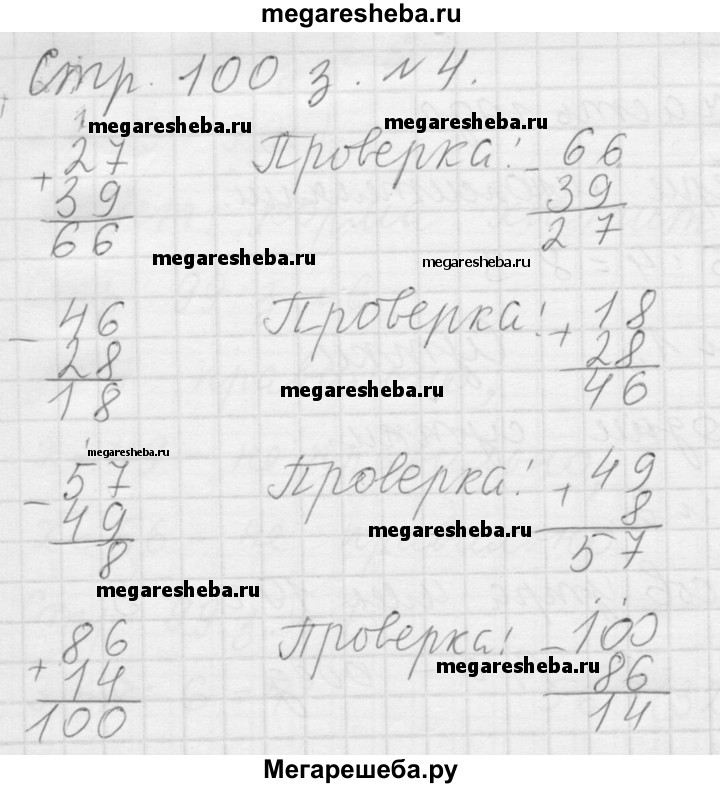 megaresheba.ru
Стр. 100 з. №4.
megaresheba.ru
megaresheba.ru
1
+ 27
39
66
Проверка!
- 66
39
27
megaresheba.ru
megaresheba.ru
- 46
28
18
Проверка!
+ 18
28
46
megaresheba.ru
megaresheba.ru
- 57
49
8
Проверка!
+ 49
8
57
megaresheba.ru
megaresheba.ru
+ 86
14
100
Проверка!
- 100
86
14
megaresheba.ru
Мегарешеба.ру